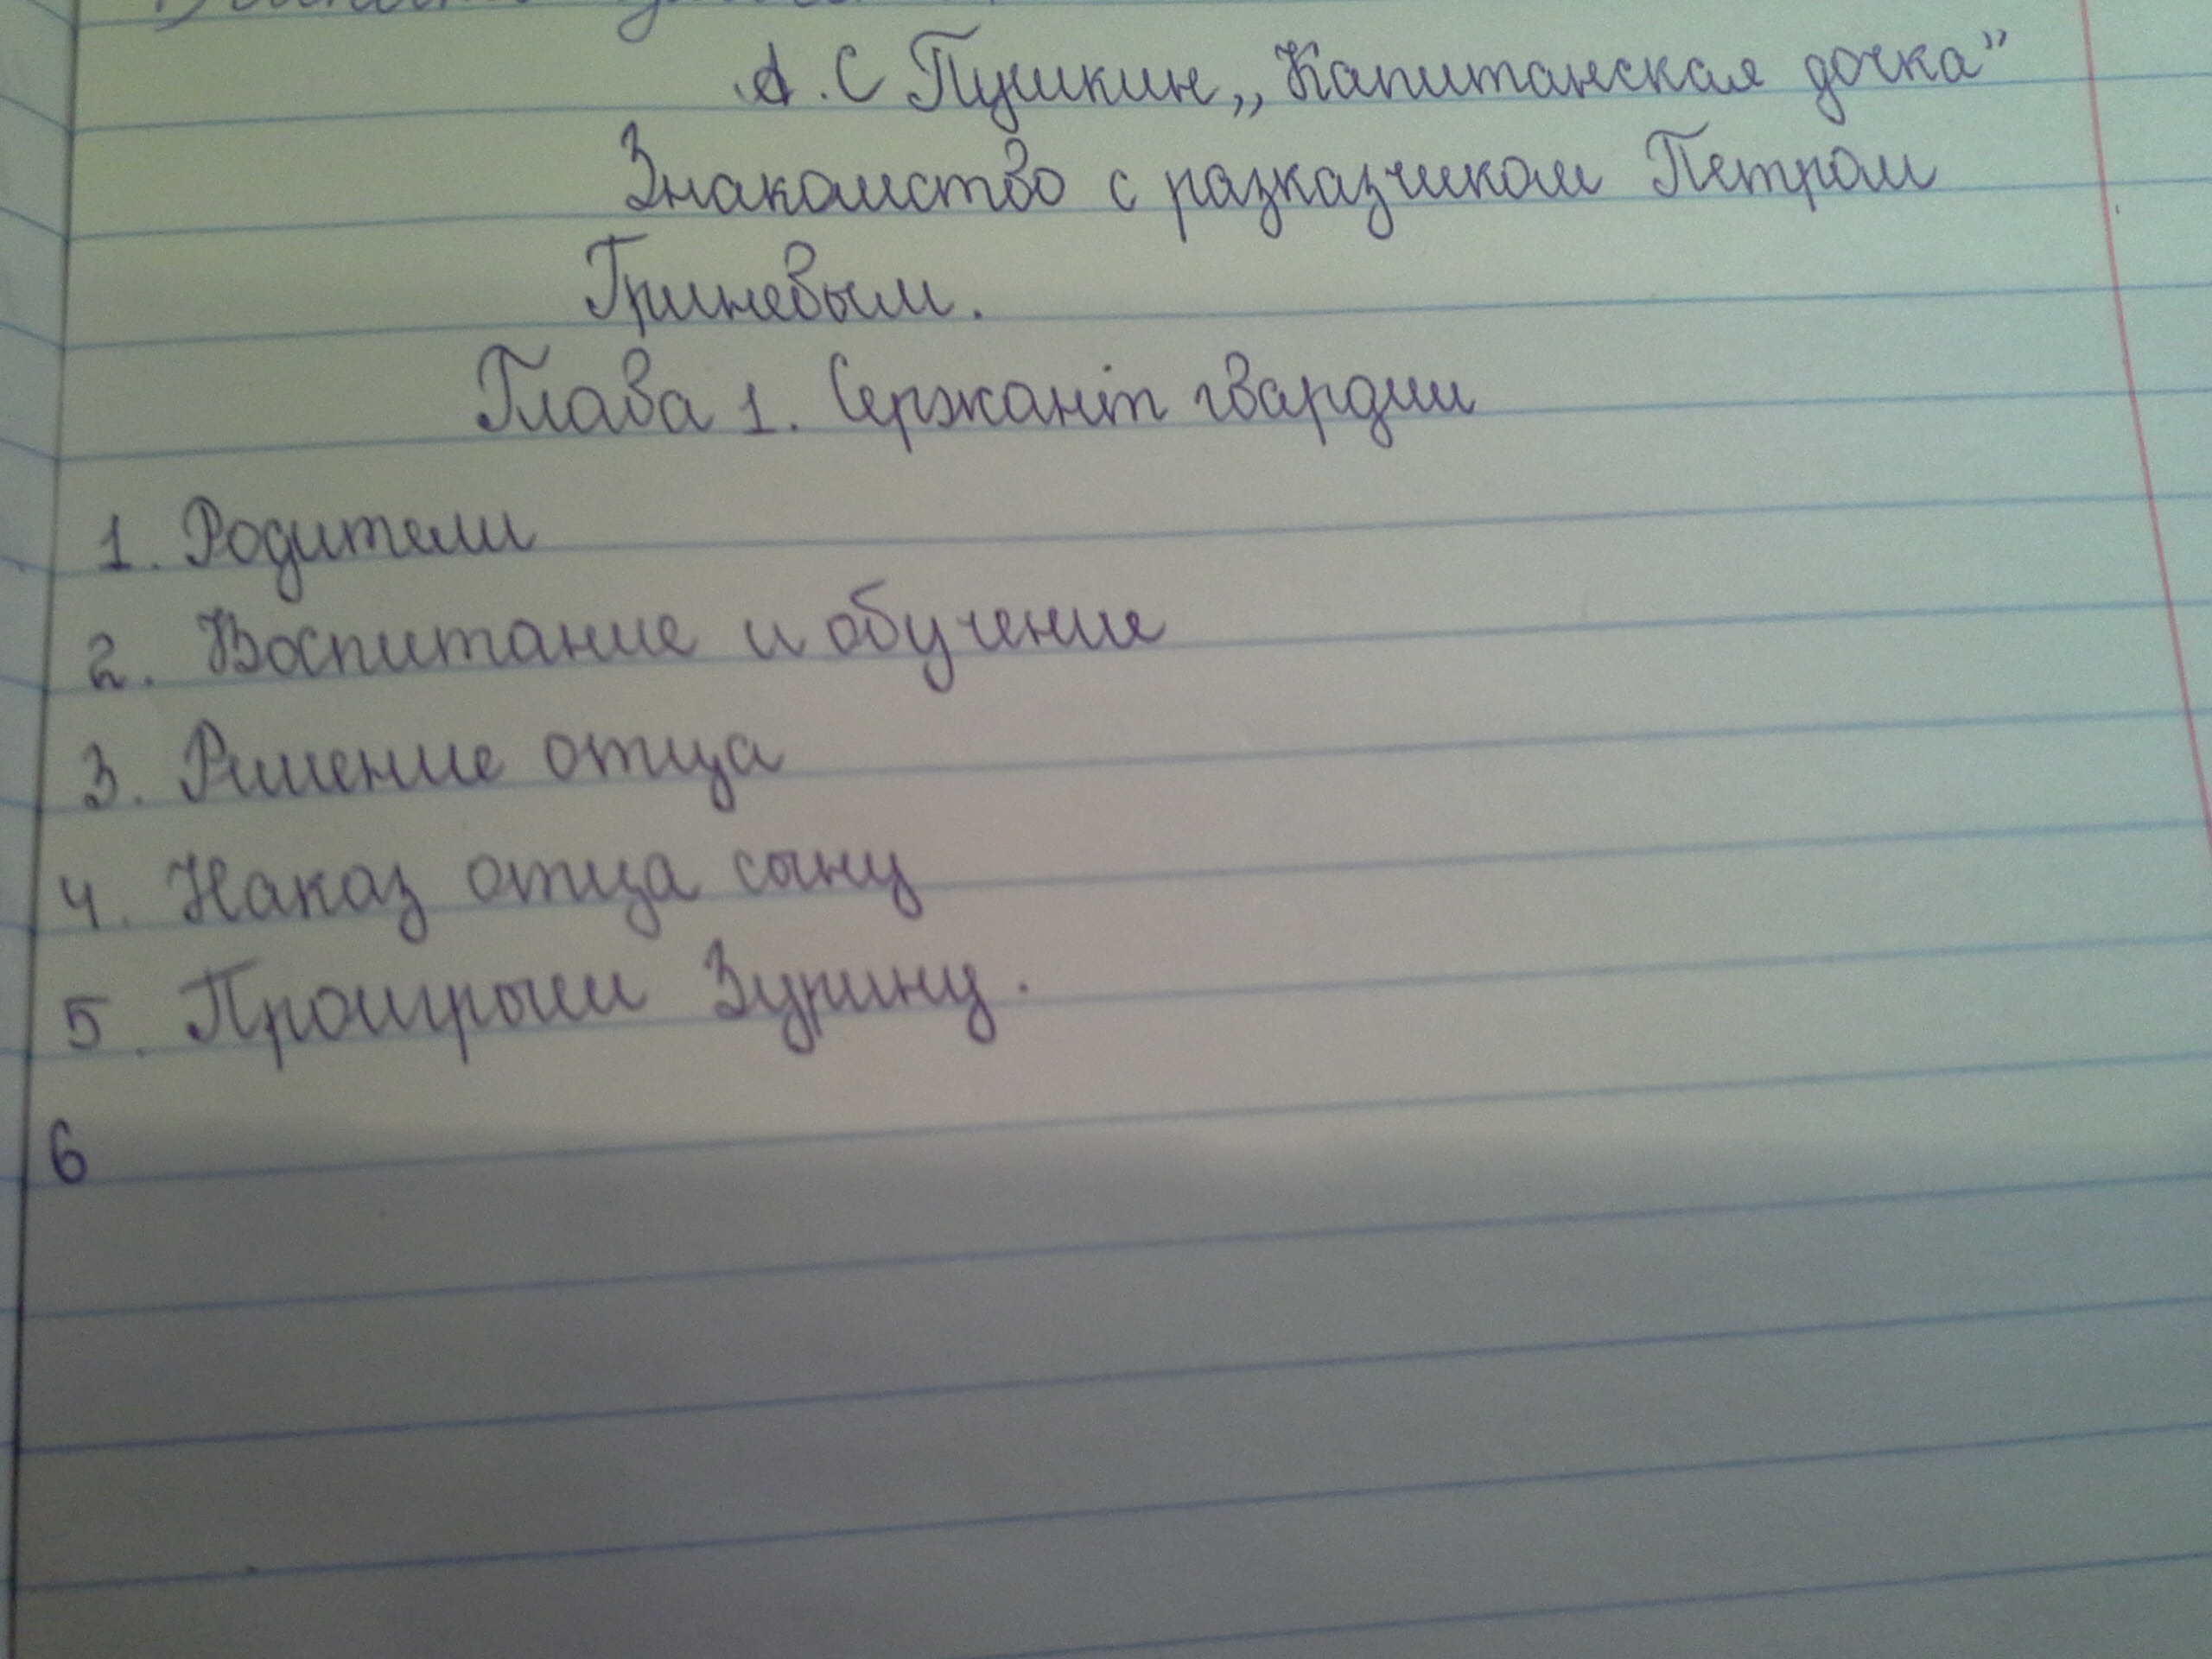 А.С Пушкин „Капитанская дочка”
Знакомство с разказчиком Петром
Гриневым.
Глава 1. Сержант гвардии
1. Родители
2. Воспитание и обучение
3. Решение отца
4. Наказ отца сыну
5. Проигрыш Зурину.
6